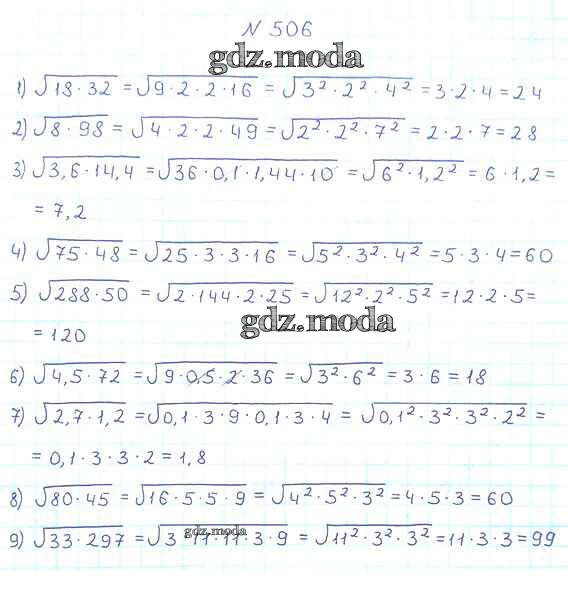 N 506
gdz.moda
1) √18·32 = √9·2·2·16 = √3²·2²·4² = 3·2·4 = 24
2) √8·98 = √4·2·2·49 = √2²·2²·7² = 2·2·7 = 28
3) √3,6·14,4 = √36·0,1·1,44·10 = √6²·1,2² = 6·1,2 =
= 7,2
4) √75·48 = √25·3·3·16 = √5²·3²·4² = 5·3·4 = 60
5) √288·50 = √2·144·2·25 = √12²·2²·5² = 12·2·5 =
gdz.moda
= 120
6) √4,5·72 = √9·0,5·2·36 = √3²·6² = 3·6 = 18
7) √2,7·1,2 = √0,1·3·9·0,1·3·4 = √0,1²·3²·3²·2² =
= 0,1·3·3·2 = 1,8
8) √80·45 = √16·5·5·9 = √4²·5²·3² = 4·5·3 = 60
gdz.moda
9) √33·297 = √3·11·11·3·9 = √11²·3²·3² = 11·3·3 = 99